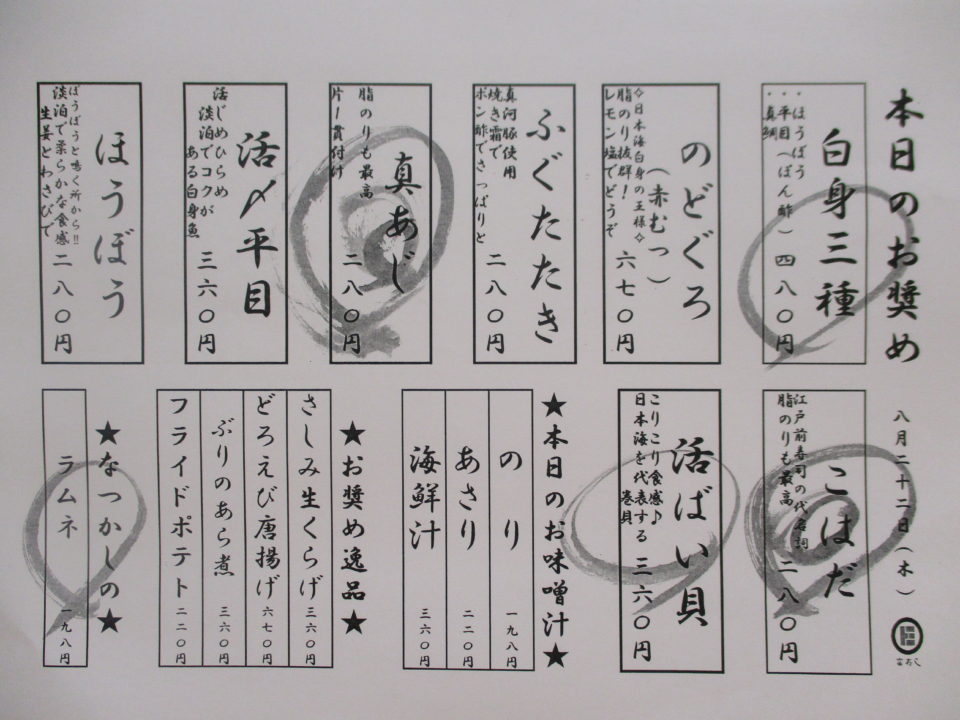 本日のお奨め
八月二十二日(木)
白身三種
・ほうぼう
・平目(ぽん酢)
・真鯛
四八〇円
のどぐろ
(赤むつ)
◇日本海白身の王様◇
脂のり抜群!
レモン塩でどうぞ
六七〇円
ふぐたたき
真河豚使用
焼き霜で
ポン酢でさっぱりと
二八〇円
真あじ
脂のりも最高
片1貫付け
二八〇円
活〆平目
活じめひらめ
淡泊でコクが
ある白身魚
三六〇円
ほうぼう
ぼうぼうと鳴く所から!!
淡泊で柔らかな食感
生姜とわさびで
二八〇円
こはだ
江戸前寿司の代名詞
脂のりも最高
二八〇円
活ばい貝
こりこり食感♪
日本海を代表する
巻貝
三六〇円
★本日のお味噌汁★
のり 一九八円
あさり 二二〇円
海鮮汁 三六〇円
★お奨め逸品★
さしみ生くらげ 三六〇円
どろえび唐揚げ 六七〇円
ぶりのあら煮 三六〇円
フライドポテト 二二〇円
★なつかしの★
ラムネ 一九八円